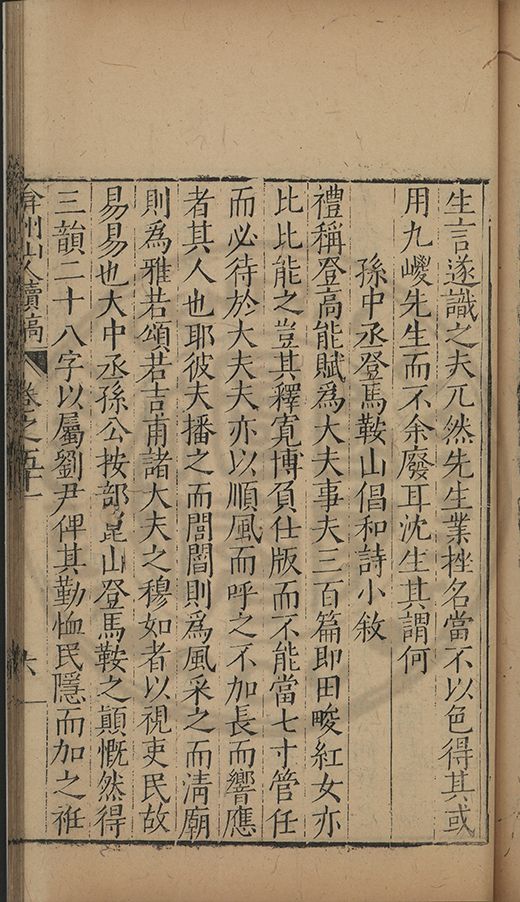 生言遂識之夫兀然先生業挫名當不以色得其或
用九嵕先生而不余廢耳沈生其謂何
孫中丞登馬鞍山倡和詩小敘
禮稱登高能賦為大夫事夫三百篇即田畯紅女亦
比比能之豈其釋寬博負仕版而不能當七寸管任
而必待於大夫夫亦以順風而呼之不加長而響應
者其人也耶彼夫播之而誾誾則為風采之而清廟
則為雅若頌若吉甫諸大夫之穆如者以視吏民故
易易也大中丞孫公按部崑山登馬鞍之顛慨然得
三韻二十八字以屬劉尹俾其勤恤民隱而加之祍
弇州山人續稿 卷之五十一 六